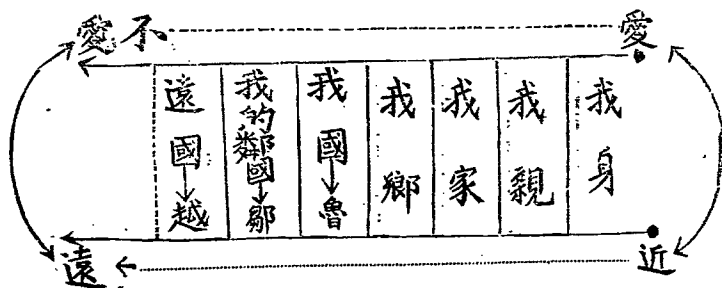 愛 不愛
我身
我親
我家
我鄉
我國→魯
我的鄰國→鄒
遠國→越
近 遠